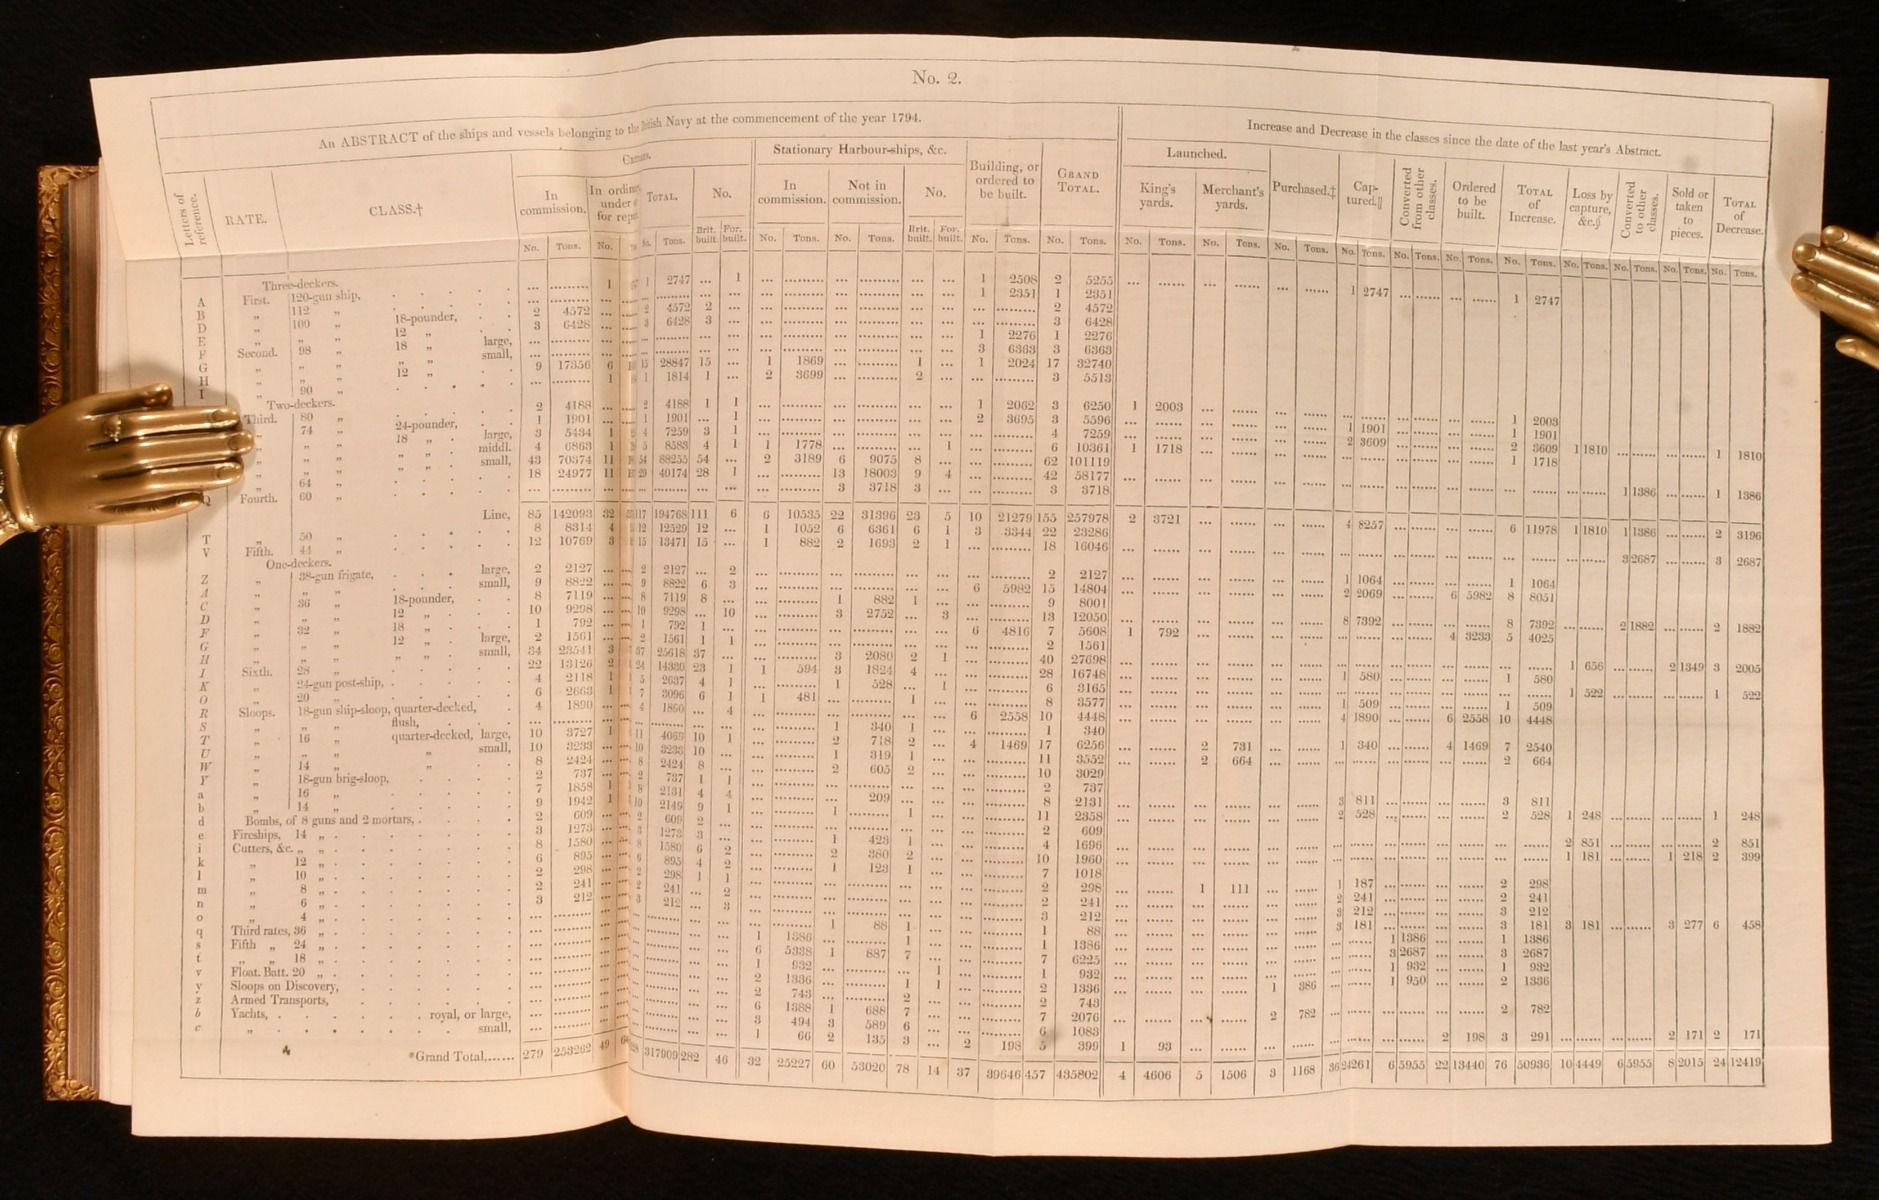 No. 2.
An ABSTRACT of the ships and vessels belonging to the British Navy at the commencement of the year 1794.
Increase and Decrease in the classes since the date of the last year's Abstract.
Letters of reference.
RATE.
CLASS.†
Cruisers.
In commission.
In ordinary
under
for repair
TOTAL.
No.
Stationary Harbour-ships, &c.
In commission.
Not in commission.
No.
Building, or ordered to be built.
GRAND TOTAL.
Launched.
King's yards.
Merchant's yards.
Purchased.‡
Captured.||
Converted from other classes.
Ordered to be built.
TOTAL of Increase.
Loss by capture, &c.§
Converted to other classes.
Sold or taken to pieces.
TOTAL of Decrease.
No. Tons. No. No. Tons. Brit. built. For. built. No. Tons. No. Tons. Brit. built. For. built. No. Tons. No. Tons. No. Tons. No. Tons. No. Tons. No. Tons. No. Tons. No. Tons. No. Tons. No. Tons. No. Tons. No. Tons. No. Tons.
Three-deckers.
A First. 120-gun ship, 1 1 2747 1 1 2508 2 5255 1 2747 1 2747
B „ 112 „ 1 2351 1 2351
D „ 100 „ 18-pounder, 2 4572 2 4572 2 2 4572
E „ „ „ 12 „ 3 6428 3 6428 3 3 6428
F Second. 98 „ 18 „ large, 1 2276 1 2276
G „ „ „ „ „ small, 3 6363 3 6363
H „ „ „ 12 „ 9 17356 6 15 28847 15 1 1869 1 1 2024 17 32740
I „ 90 „ 1 1 1814 1 2 3699 2 3 5513
Two-deckers.
Third. 80 „ 2 4188 2 4188 1 1 1 2062 3 6250 1 2003 1 2003
„ 74 „ 24-pounder, 1 1901 1 1901 1 2 3695 3 5596 1 1901 1 1901
„ „ „ 18 „ large, 3 5434 1 4 7259 3 1 4 7259 2 3609 2 3609 1 1810 1 1810
„ „ „ „ „ middl. 4 6863 1 5 8583 4 1 1 1778 1 6 10361 1 1718 1 1718
„ „ „ „ „ small, 43 70374 11 54 88255 54 2 3189 6 9075 8 62 101119
„ 64 „ 18 24977 11 29 40174 28 1 13 18003 9 4 42 58177 1 1386 1 1386
Q Fourth. 60 „ 3 3718 3 3 3718
Line, 85 142093 32 117 194768 111 6 6 10535 22 31396 23 5 10 21279 155 257978 2 3721 4 8257 6 11978 1 1810 1 1386 2 3196
T „ 50 „ 8 8314 4 12 12529 12 1 1052 6 6361 6 1 3 3344 22 23286
V Fifth. 44 „ 12 10769 3 15 13471 15 1 882 2 1693 2 1 18 16046 3 2687 3 2687
One-deckers.
Z „ 38-gun frigate, large, 2 2127 2 2127 2 2 2127 1 1064 1 1064
A „ „ „ small, 9 8822 9 8822 6 3 6 5982 15 14804 2 2069 6 5982 8 8051
C „ 36 „ 18-pounder, 8 7119 8 7119 8 1 882 1 9 8001
D „ „ „ 12 „ 10 9298 10 9298 10 3 2752 3 13 12050 8 7392 8 7392 2 1882 2 1882
F „ 32 „ 18 „ 1 792 1 792 1 6 4816 7 5608 1 792 4 3233 5 4025
G „ „ „ 12 „ large, 2 1561 2 1561 1 1 2 1561
H „ „ „ „ „ small, 34 23541 3 37 25618 37 3 2080 2 1 40 27698 1 656 2 1349 3 2005
I Sixth. 28 „ 22 13126 2 24 14330 23 1 1 594 3 1824 4 28 16748 1 580 1 580
K „ 24-gun post-ship, 4 2118 1 5 2637 4 1 1 528 1 6 3165 1 522 1 522
O „ 20 „ 6 2663 1 7 3096 6 1 1 481 1 8 3577 1 509 1 509
R Sloops. 18-gun ship-sloop, quarter-decked, 4 1890 4 1890 4 6 2558 10 4448 4 1890 6 2558 10 4448
S „ „ „ flush, 1 340 1 1 340
T „ 16 „ quarter-decked, large, 10 3727 1 11 4069 10 1 2 718 2 4 1469 17 6256 2 731 1 340 4 1469 7 2540
U „ „ „ „ small, 10 3233 10 3233 10 1 319 1 11 3552 2 664 2 664
W „ 14 „ „ 8 2424 8 2424 8 2 605 2 10 3029
Y „ 18-gun brig-sloop, 2 737 2 737 1 1 2 737
a „ 16 „ 7 1858 1 8 2131 4 4 8 2131 3 811 3 811
b „ 14 „ 9 1942 1 10 2149 9 1 1 209 1 11 2358 2 528 2 528 1 248 1 248
d Bombs, of 8 guns and 2 mortars, 2 609 2 609 2 2 609
e Fireships, 14 „ 3 1273 3 1273 3 1 423 1 4 1696 2 851 2 851
i Cutters, &c. „ „ 8 1580 8 1580 6 2 2 380 2 10 1960 1 181 1 218 2 399
k „ 12 „ 6 895 6 895 4 2 1 123 1 7 1018
l „ 10 „ 2 298 2 298 1 1 2 298 1 111 1 187 2 298
m „ 8 „ 2 241 2 241 2 2 241 2 241 2 241
n „ 6 „ 3 212 3 212 3 3 212 3 212 3 212
o „ 4 „ 1 88 1 1 88 3 181 3 181 3 181 3 277 6 458
q Third rates, 36 „ 1 1386 1 1 1386 1 1386 1 1386
s Fifth „ 24 „ 6 5338 1 887 7 7 6225 3 2687 3 2687
t „ „ 18 „ 1 932 1 1 932 1 932 1 932
v Float. Batt. 20 „ 2 1336 1 1 2 1336 1 386 1 950 2 1336
y Sloops on Discovery, 2 743 2 2 743
z Armed Transports, 6 1388 1 688 7 7 2076 2 782 2 782
b Yachts, royal, or large, 3 494 3 589 6 6 1083
c „ small, 1 66 2 135 3 2 198 5 399 1 93 2 198 3 291 2 171 2 171
*Grand Total, 279 253262 49 317909 282 46 32 25227 60 53020 78 14 37 39646 457 435802 4 4606 5 1506 3 1168 36 24261 6 5955 22 13440 76 50936 10 4449 6 5955 8 2015 24 12419